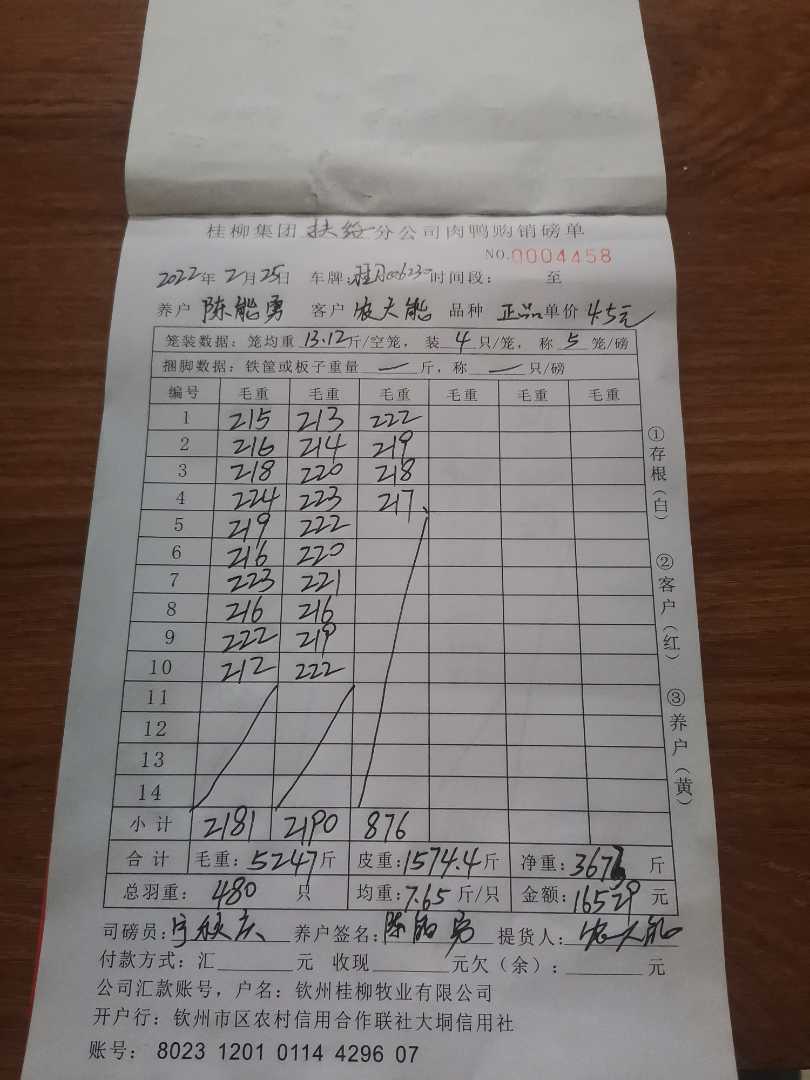 桂柳集团 扶绥 分公司肉鸭购销磅单
NO.0004458
2022年2月25日 车牌: 时间段: 至
养户 陈能勇 客户 农天能 品种 正品 单价 4.5元
笼装数据: 笼均重 13.12 斤/空笼, 装 4 只/笼, 称 5 笼/磅
捆脚数据: 铁筐或板子重量 — 斤, 称 — 只/磅
编号 毛重 毛重 毛重 毛重 毛重 毛重
1 215 213 222
2 216 214 219
3 218 220 218
4 224 223 217
5 219 222
6 216 220
7 223 221
8 216 216
9 222 219
10 212 222
11
12
13
14
小计 2181 2190 876
合计 毛重: 5247斤 皮重: 1574.4斤 净重: 斤
总羽重: 480 只 均重: 7.65 斤/只 金额: 16529 元
司磅员: 养户签名: 陈能勇 提货人: 农天能
付款方式: 汇 元 收现 元欠(余): 元
公司汇款账号, 户名: 钦州桂柳牧业有限公司
开户行: 钦州市区农村信用合作联社大垌信用社
账号: 8023 1201 0114 4296 07
①存根(白)
②客户(红)
③养户(黄)